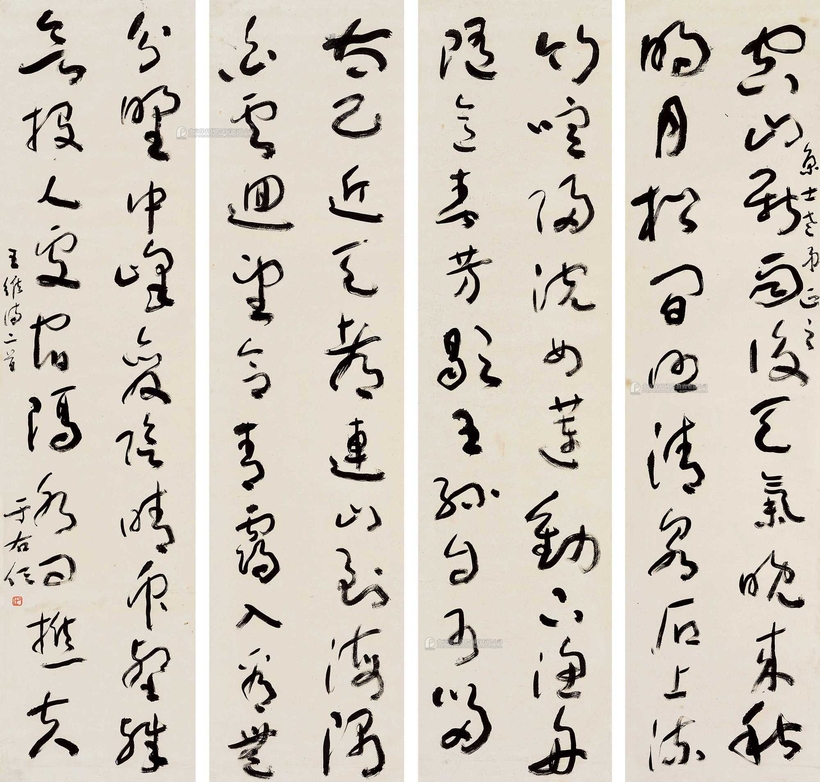 空山新雨後天氣晚來秋
士老弟正之
明月松間照清泉石上流
竹喧歸浣女蓮動下漁舟
隨意春芳歇王孫自可留
太乙近天都連山到海隅
白雲迴望合青靄入看無
分野中峰變陰晴眾壑殊
欲投人處宿隔水問樵夫
王維詩二首
于右任